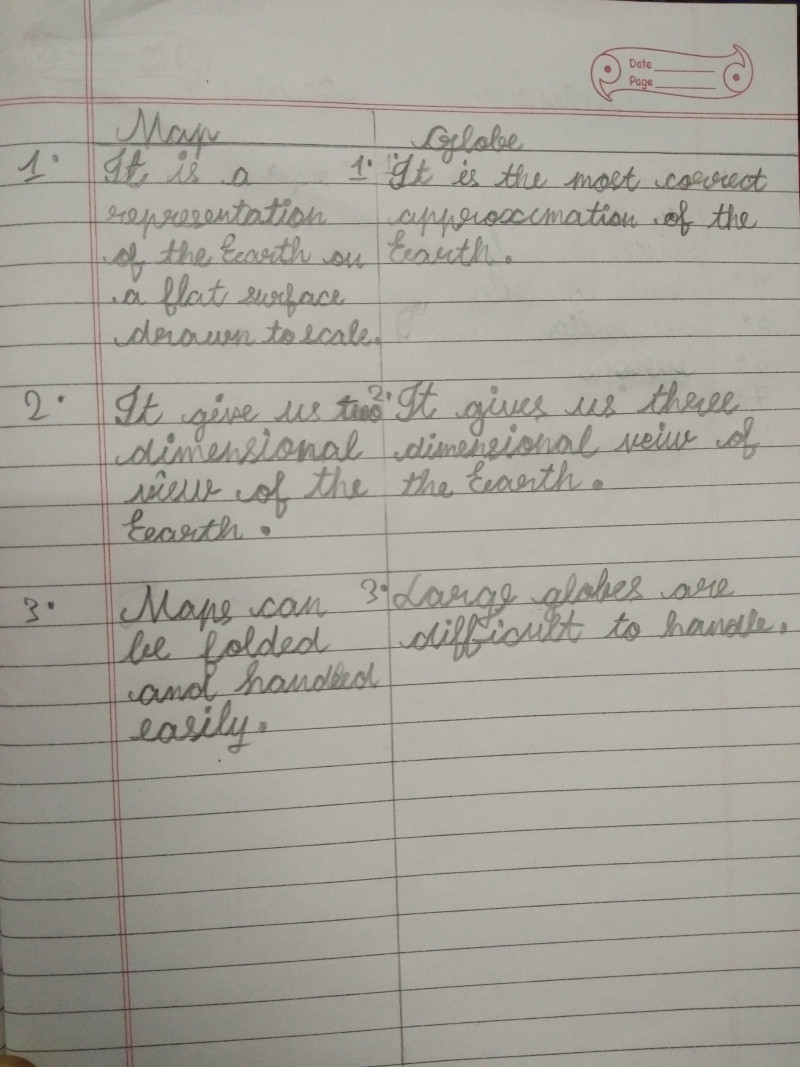 Date
Page
Map Globe
1. It is a 1. It is the most correct
representation approximation of the
of the Earth on Earth.
a flat surface
drawn to scale.
2. It give us two 2. It gives us three
dimensional dimensional veiw of
view of the the Earth.
Earth.
3. Maps can 3. Large globes are
be folded difficult to handle.
and handled
easily.